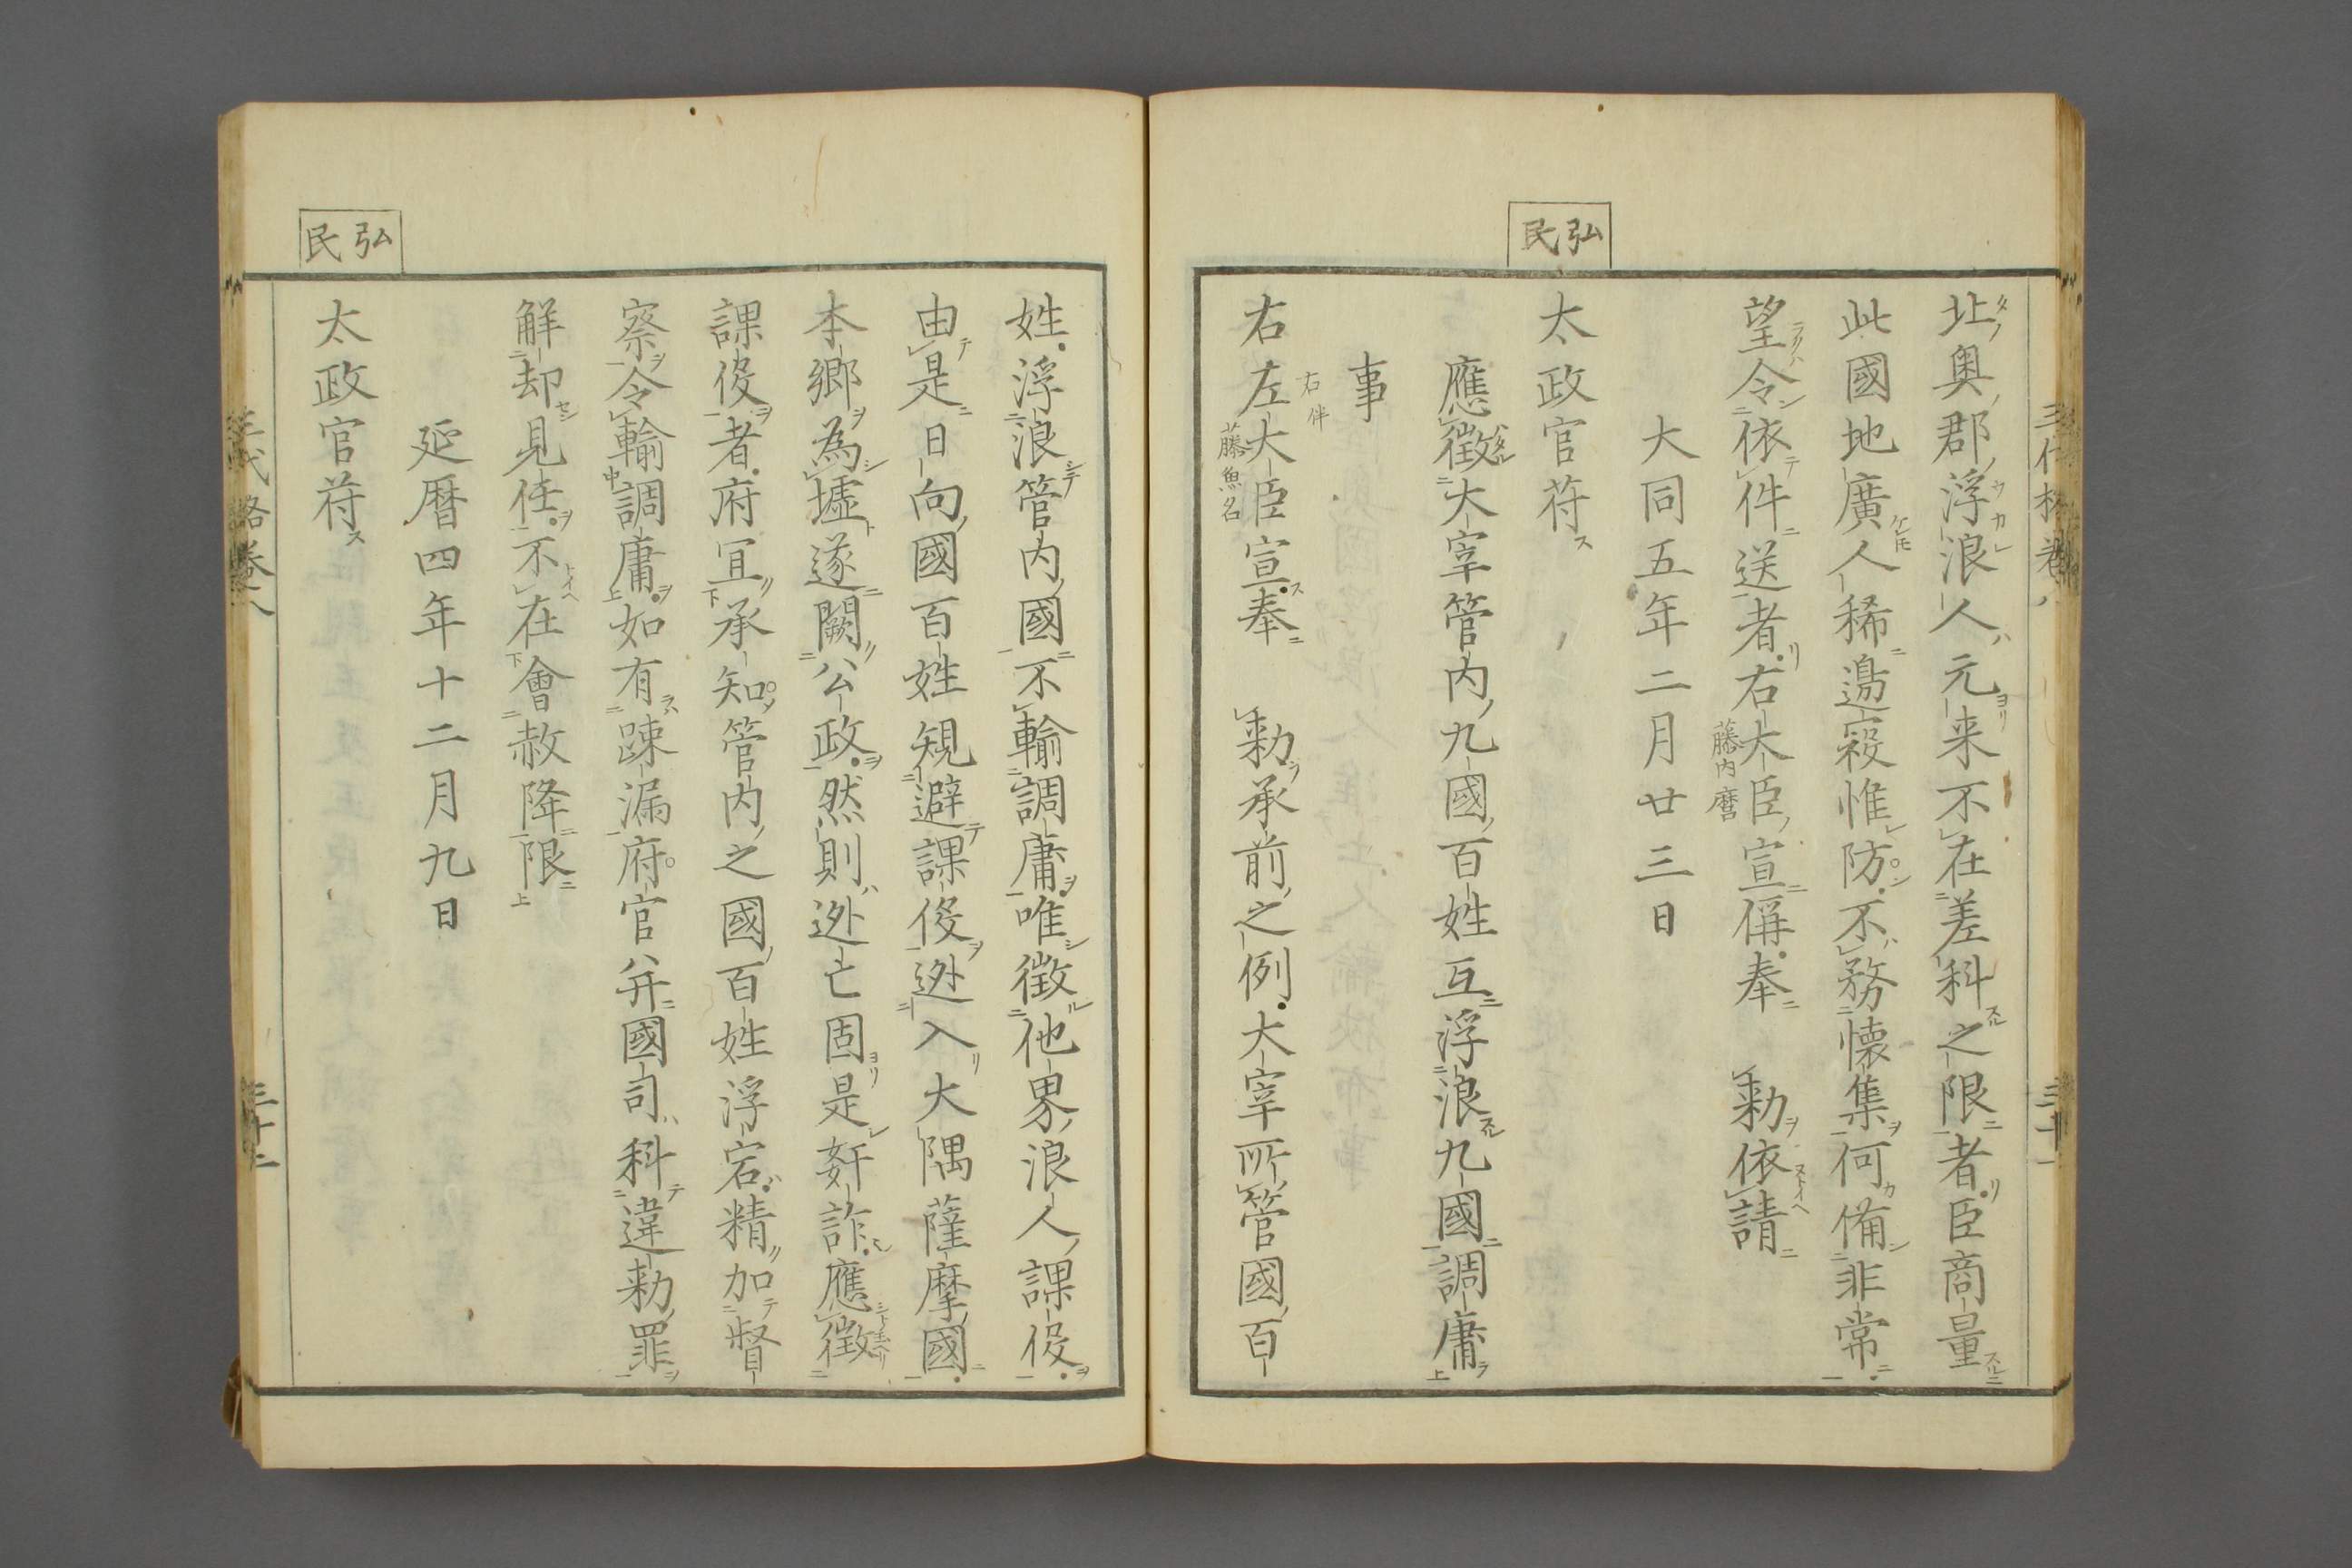 弘民
北奥郡浮浪人元来不在差科之限者臣商量
此國地廣人稀邉寇惟防不務懐集何備非常
望令依件送者右大臣宣偁奉　勅依請
藤内麿
大同五年二月廿三日
太政官苻
應徴大宰管内九國百姓互浮浪九國調庸
事
右件
右左大臣宣奉　勅承前之例大宰所管國百
藤魚名
弘民
姓浮浪管内國不輸調庸唯徴他界浪人課役
由是日向國百姓規避課役逃入大隅薩摩國
本郷為墟遂闕公政然則逃亡固是姧詐應徴
課役者府宜承知管内之國百姓浮宕精加督
察令輸調庸如有踈漏府官并國司科違勅罪
解却見任不在會赦降限
延暦四年十二月九日
太政官苻
三代格巻八
三十二